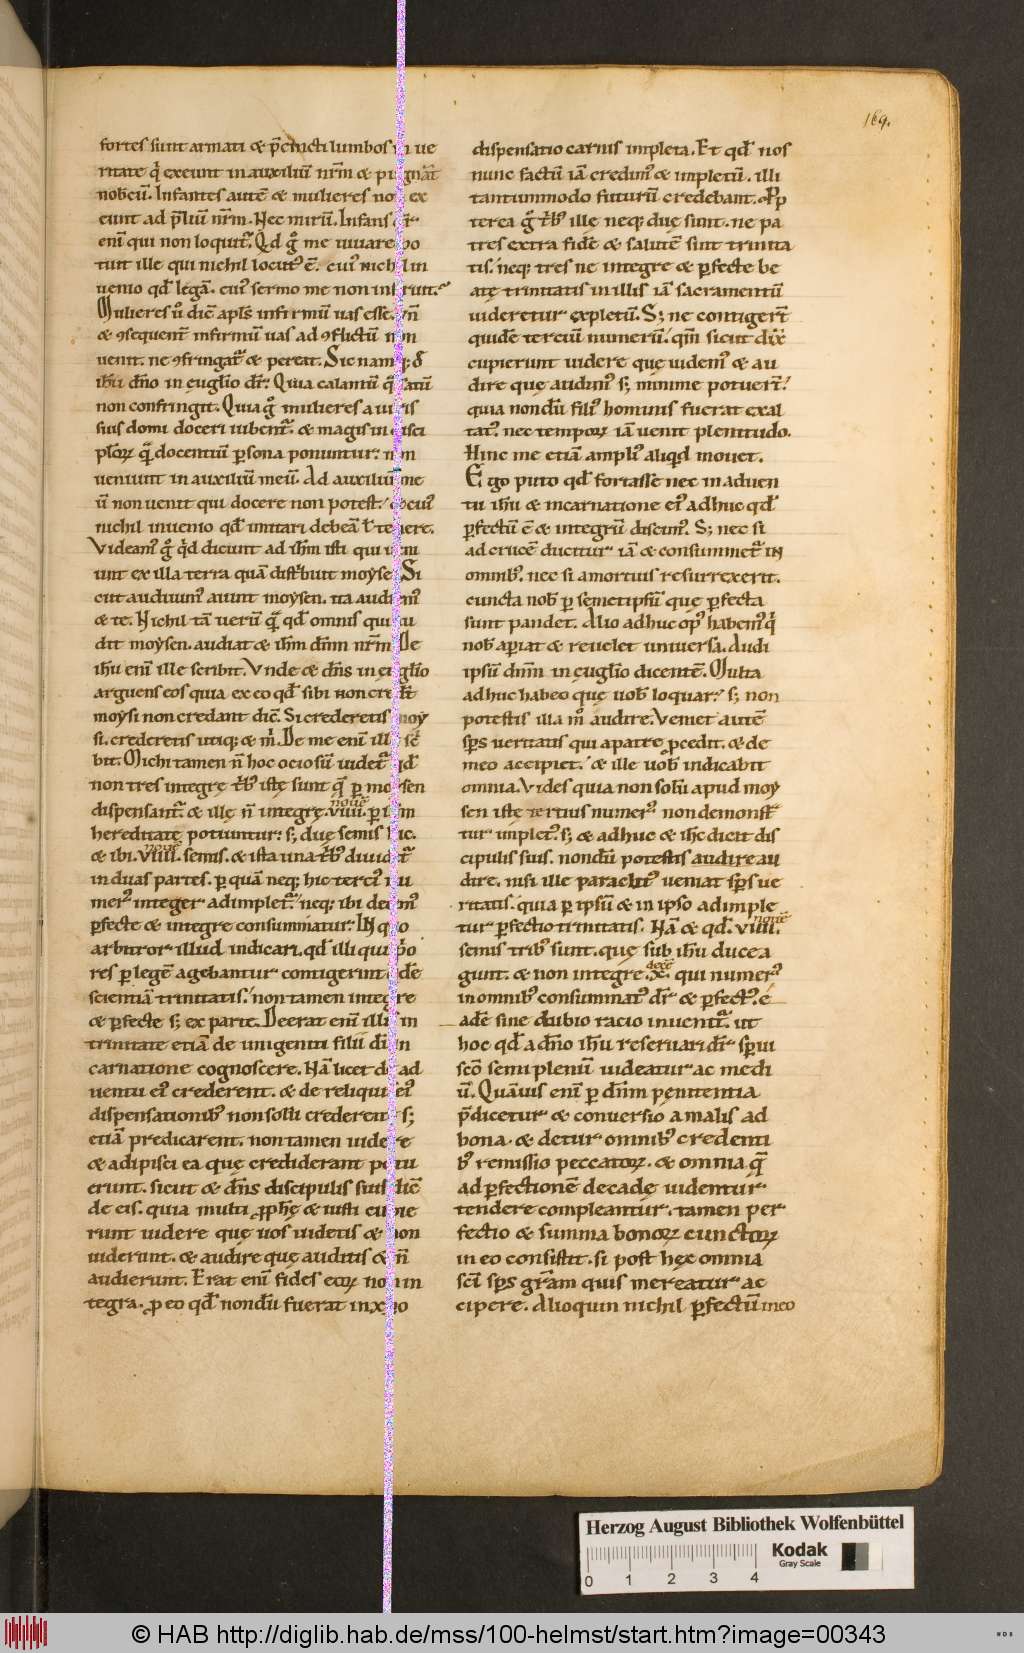 169.
fortes sunt armati & p̄cincti lumbos ue
ritate q̇ exeunt in auxiliū nr̄m &
nobcū. Infantes autē & mulieres ex
eunt ad p̄liū nr̄m. Nec mirū. Infans
enī qui non loquit᷑. Qd g̊ me iuuare
tuit ille qui nichil locut᷒ ē. cui᷒ in
uenio qd̄ legā. cui᷒ sermo me non
Mulieres ů dic̄ apl̄s infirmū uas esse.
& ꝯsequent̄ infirmū uas ad ꝯflictū
uenit. ne ꝯfringat᷑ & pereat. Sic
ih̄u dn̄o in euglīo dr̄. Quia calamū
non confringit. Quia g̊ mulieres a
suis domi doceri iubent᷑. & magis in
pl̄oꝝ q̄ docentiū ꝑsona ponuntur.
ueniunt in auxiliū meū. Ad me
ū non uenit qui docere non potest.
nichil inuenio qd̄ imitari debeā ł
Videam᷒ g̊ q̇d dicunt ad ih̄m isti qui
unt ex illa terra quā distˡbuit Si
cut audiuim᷒ aiunt moẏsen. ita
& te. Nichil tā uerū q̄ qd̄ omnis
dit moẏsen. audiat & ih̄m dn̄m nr̄m. De
ih̄u enī ille scribit. Vnde & dn̄s in
arguens eos quia ex eo qd̄ sibi non
moẏsi non credant dic̄. Si crederetis
si. crederetis utiq; & m̍. De me enī
bit. Michi tamen n̄ hoc ociosū uidet᷑
non tres integrę tˡb᷒ istę sunt q̄ ꝑ
dispensant᷑. & illę n̄ integrę. viiii. ꝑ
hereditatę potiuntur. s; duę semis
& ibi. viiii. semis. & ista una tˡb᷒
in duas partes. ꝑ quā neq; hic terci᷒
mer᷒ integer adimplet᷑. neq; ibi
ꝑfecte & integre consummatur. IN
arbitror illud indicari. qd̄ illi qui
res ꝑ legē agebantur contigerint
scientiā trinitatis. non tamen
& ꝑfecte s; ex parte. Deerat enī in
trinitate etiā de unigeniti filii
carnatione cognoscere. Nā licet ad
uentu ei᷒ crederent. & de ei᷒
dispensationib᷒ non sołū s;
etiā predicarent. non tamen
& adipisci ea quę crediderant
erunt. sicut & dn̄s discipulis suis
de eis. quia multi ꝓph̄ę & iusti
runt uidere quę uos uidetis & non
uiderunt. & audire quę auditis & n̄
audierunt. Erat enī fides eoꝝ non in
tegra. ꝓ eo qd̄ nondū fuerat in
dispensatio carnis impleta. Et qd̄ nos
nunc factū iā credim᷒ & impletū. illi
tantummodo futurū credebant. Ꝓp
terea g̊ tˡb᷒ illę neq; duę sunt. ne pa
tres extra fidē & salutē sint trinita
tis. neq; tres ne integre & ꝑfecte be
atę trinitatis in illis iā sacramentū
uideretur expletū. S; ne contigerīt
quidē terciū numerū. qm̄ sicut dix̄
cupierunt uidere quę uidem᷒ & au
dire quę audim᷒ s; minime potuer̄t.
quia nondū fili᷒ hominis fuerat exal
tat᷒. nec tempoꝝ iā uenit plenitudo.
Hinc me etiā ampli᷒ aliqd̍ mouet.
Ego puto qd̄ fortasse nec in aduen
tu ih̄u & incarnatione ei᷒ adhuc qd̄
ꝑfectū ē & integrū discim᷒. S; nec si
ad crucē ducitur iā & consummet᷑ in
omnib᷒. nec si a mortuis resurrexerit.
cuncta nob̄ ꝑ semetipsū quę ꝑfecta
sunt pandet. Alio adhuc op᷒ habem᷒ q̍
nob̄ aꝑiat & reuelet uniuersa. Audi
ipsū dn̄m in euglīo dicentē. Multa
adhuc habeo quę uob̄ loquar. s; non
potestis illa m̊ audire. Veniet autē
sp̄s ueritatis qui a patre ꝓcedit. & de
meo accipiet. & ille uob̄ indicabit
omnia. Vides quia non solū apud moẏ
sen istę tertius numer᷒ non demonstˡ
tur implet᷒. s; & adhuc & ih̄c dicit dis
cipulis suis. nondū potestis audire au
dire. nisi ille paraclit᷒ ueniat sp̄s ue
ritatis. quia ꝑ ipsū & in ipso adimple
tur ꝑfectio trinitatis. Nā & qd̄. viiii.
semis tribuˢ sunt. quę sub ih̄u duce a
gunt. & non integre. x. qui numer᷒
in omnib᷒ consummat᷒ dr̄ & ꝑfect᷒. é
adē sine dubio racio inuenit᷑. ut
hoc qd̄ a dn̄o ih̄u reseruari dr̄ sp̄ui
scō semi plenū uideatur ac medi
ū. Quāuis enī ꝑ dn̄m penitentia
p̄dicetur & conuersio a malis ad
bona. & detur omnib᷒ credenti
b᷒ remissio peccatoꝝ. & omnia q̄
ad ꝑfectionē decadę uidentur
tendere compleantur. tamen per
fectio & summa bonoꝝ cunctoꝝ
in eo consistit. si post hęc omnia
scī sp̄s gr̄am quis mereatur ac
cipere. Alioquin nichil ꝑfectū in eo
Herzog August Bibliothek Wolfenbüttel
Kodak
Gray Scale
0 1 2 3 4
© HAB http://diglib.hab.de/mss/100-helmst/start.htm?image=00343